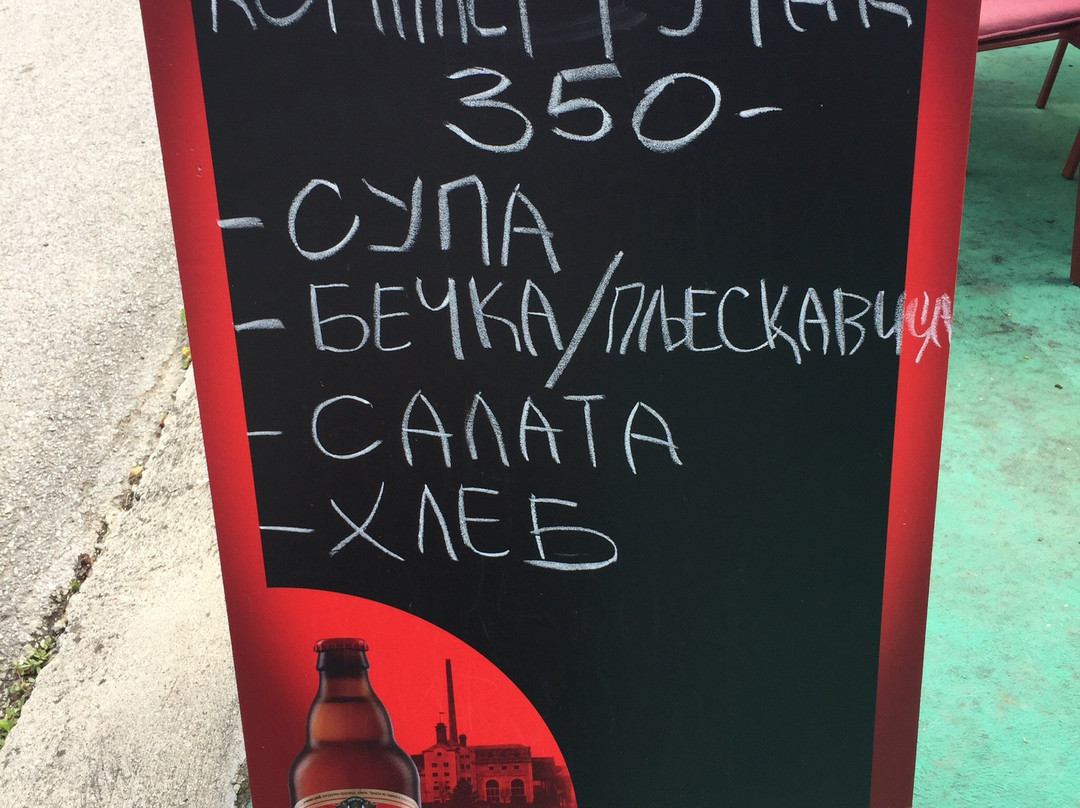 КОМПЛЕТ РУЧАК
350-
- СУПА
- БЕЧКА/ПЉЕСКАВИЦА
- САЛАТА
- ХЛЕБ